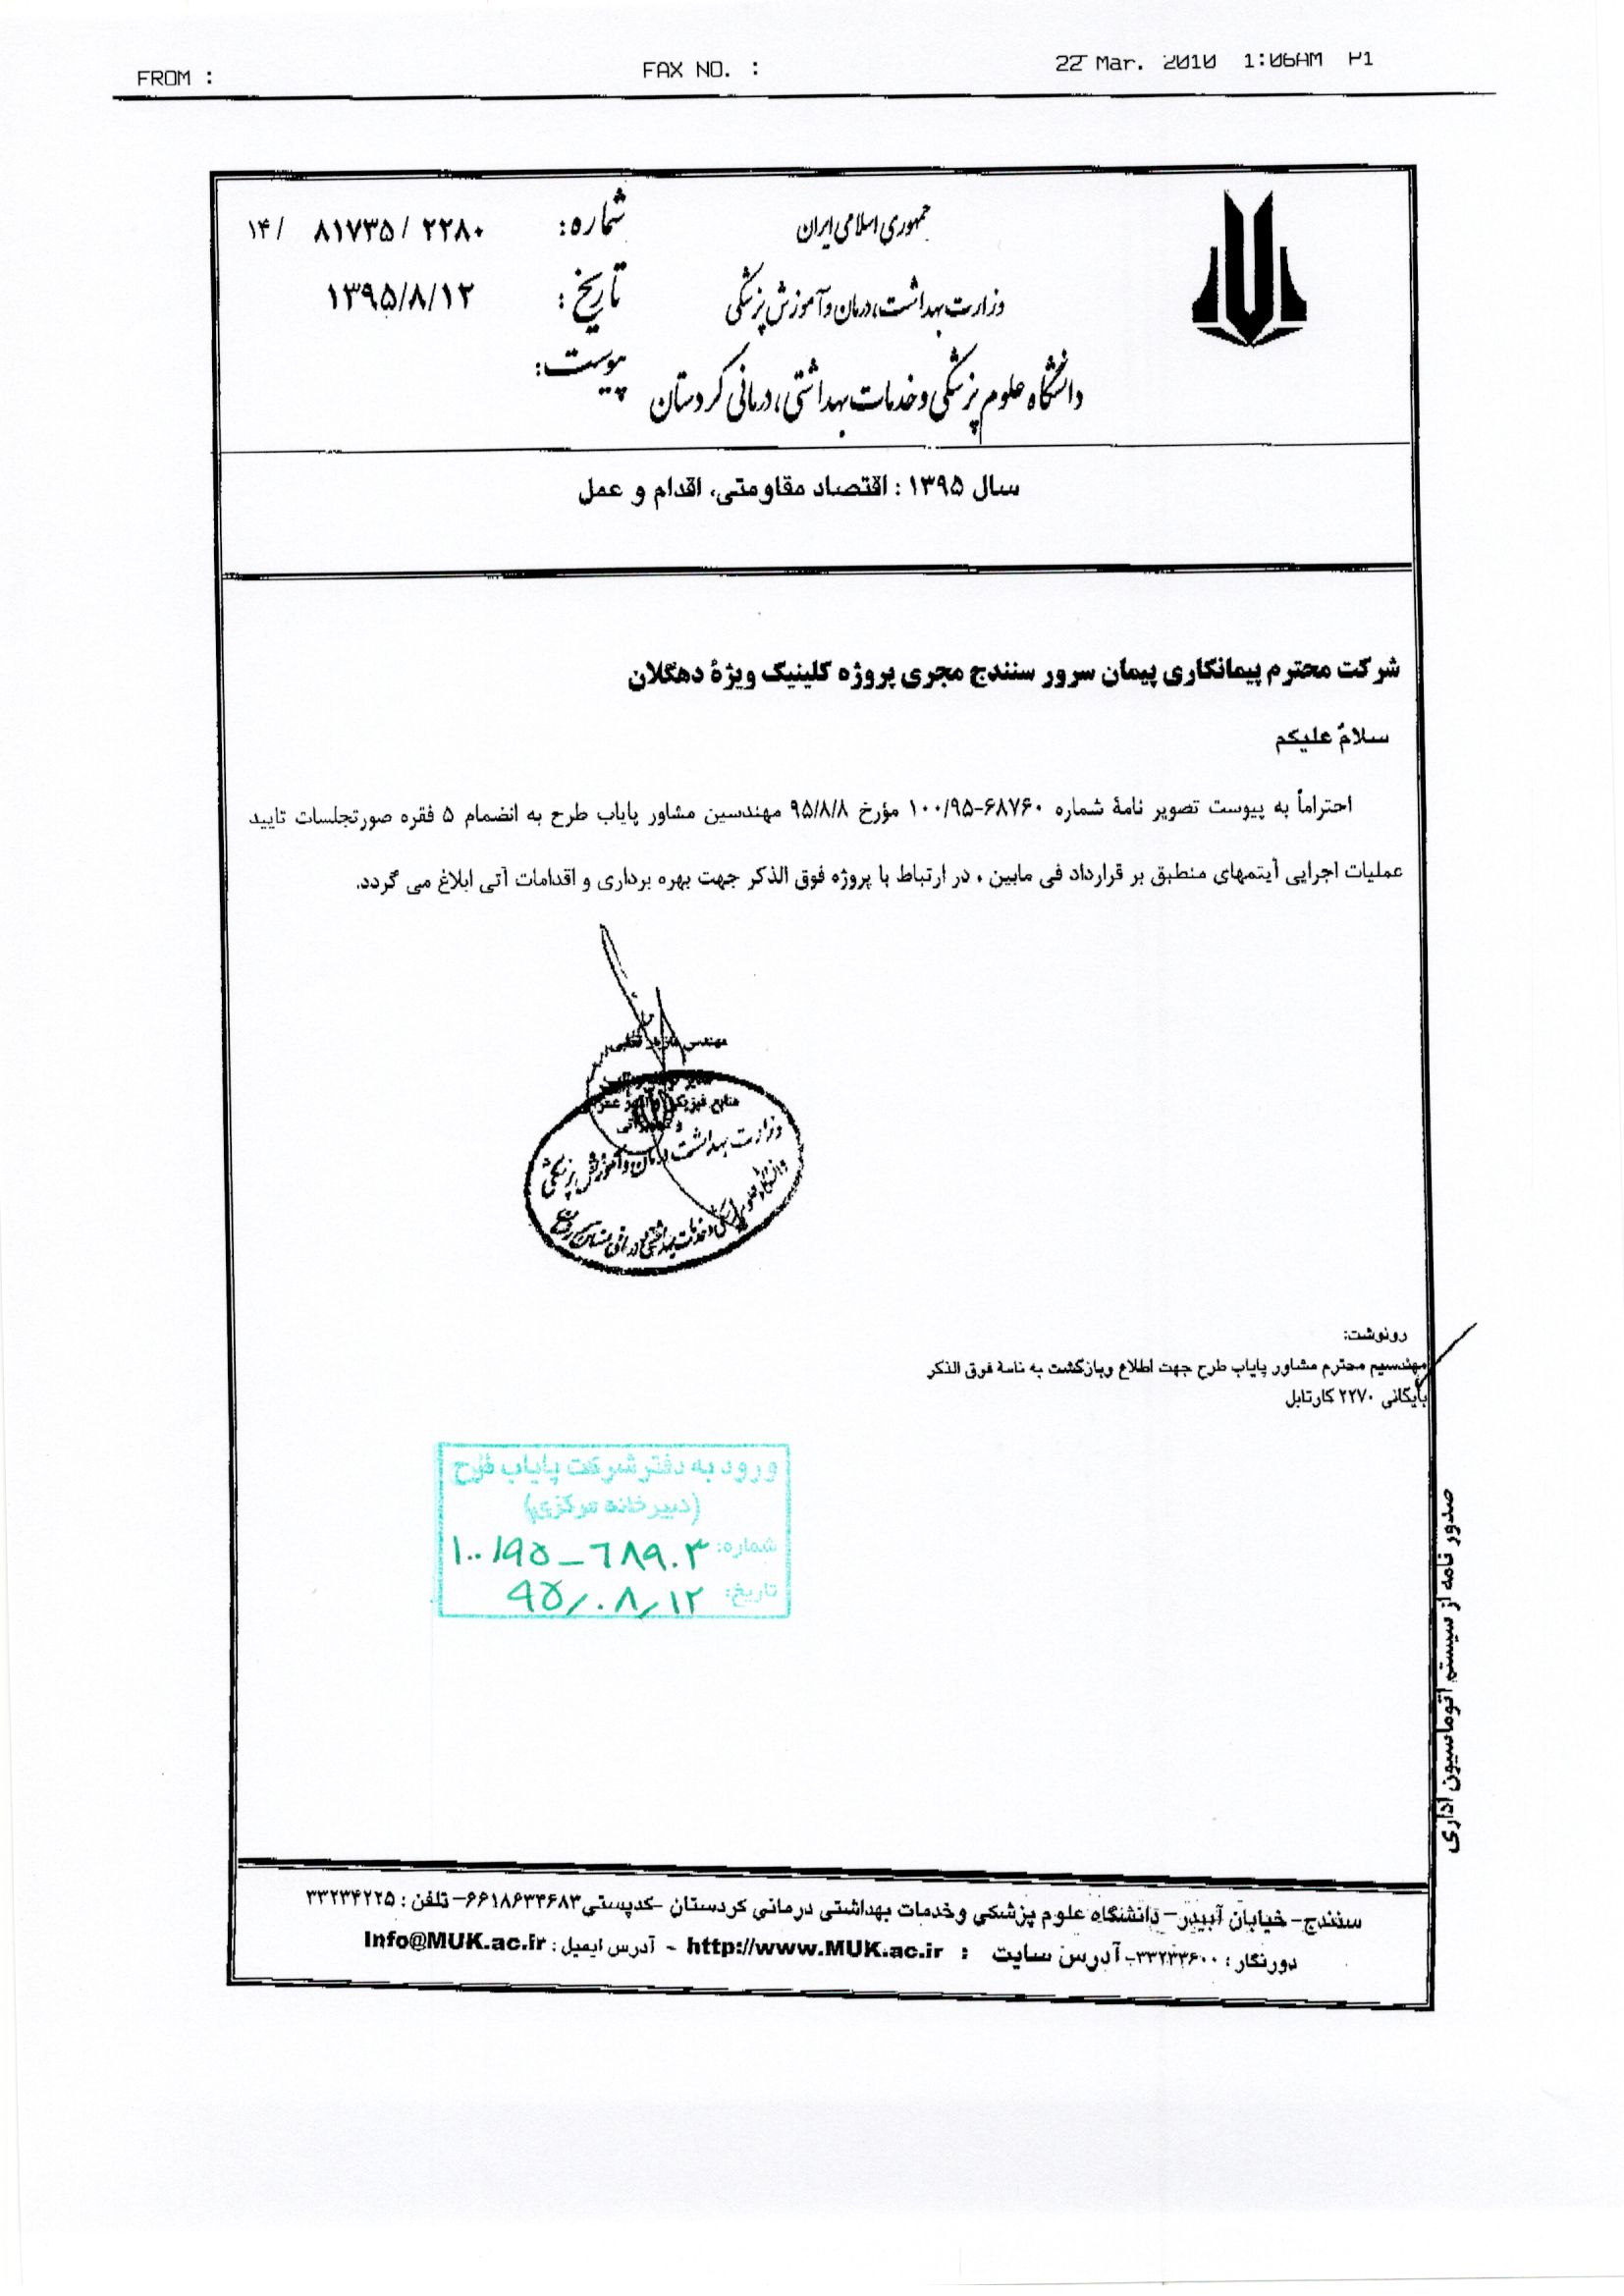 FROM :
FAX NO. :
22 Mar. 2010 1:06AM P1
جمهوری اسلامی ایران
وزارت بهداشت، درمان و آموزش پزشکی
دانشگاه علوم پزشکی و خدمات بهداشتی، درمانی کردستان
شماره: ۱۴/ ۸۱۷۳۵/ ۲۲۸۰
تاریخ: ۱۳۹۵/۸/۱۲
پیوست:
سال ۱۳۹۵ : اقتصاد مقاومتی، اقدام و عمل
شرکت محترم پیمانکاری پیمان سرور سنندج مجری پروژه کلینیک ویژهٔ دهگلان
سلامٌ علیکم
احتراماً به پیوست تصویر نامهٔ شماره ۶۸۷۶۰-۱۰۰/۹۵ مؤرخ ۹۵/۸/۸ مهندسین مشاور پایاب طرح به انضمام ۵ فقره صورتجلسات تایید
عملیات اجرایی آیتمهای منطبق بر قرارداد فی مابین ، در ارتباط با پروژه فوق الذکر جهت بهره برداری و اقدامات آتی ابلاغ می گردد.
مهندس
منابع فیزیکی
وزارت بهداشت درمان و آموزش پزشکی
دانشگاه علوم پزشکی و خدمات بهداشتی درمانی استان کردستان
رونوشت:
مهندسیم محترم مشاور پایاب طرح جهت اطلاع وبازگشت به نامهٔ فوق الذکر
بایگانی ۲۲۷۰ کارتابل
ورود به دفتر شرکت پایاب طرح
(دبیرخانه مرکزی)
شماره: ۱۰۰/۹۵-۶۸۹۰۳
تاریخ: ۹۵/۰۸/۱۲
صدور نامه از سیستم اتوماسیون اداری
سنندج- خیابان آبیدر- دانشگاه علوم پزشکی وخدمات بهداشتی درمانی کردستان -کدپستی۶۶۱۸۶۳۴۶۸۳- تلفن : ۳۳۲۳۴۲۲۵
دورنگار : ۳۳۲۳۳۶۰۰- آدرس سایت : http://www.MUK.ac.ir - آدرس ایمیل : Info@MUK.ac.ir